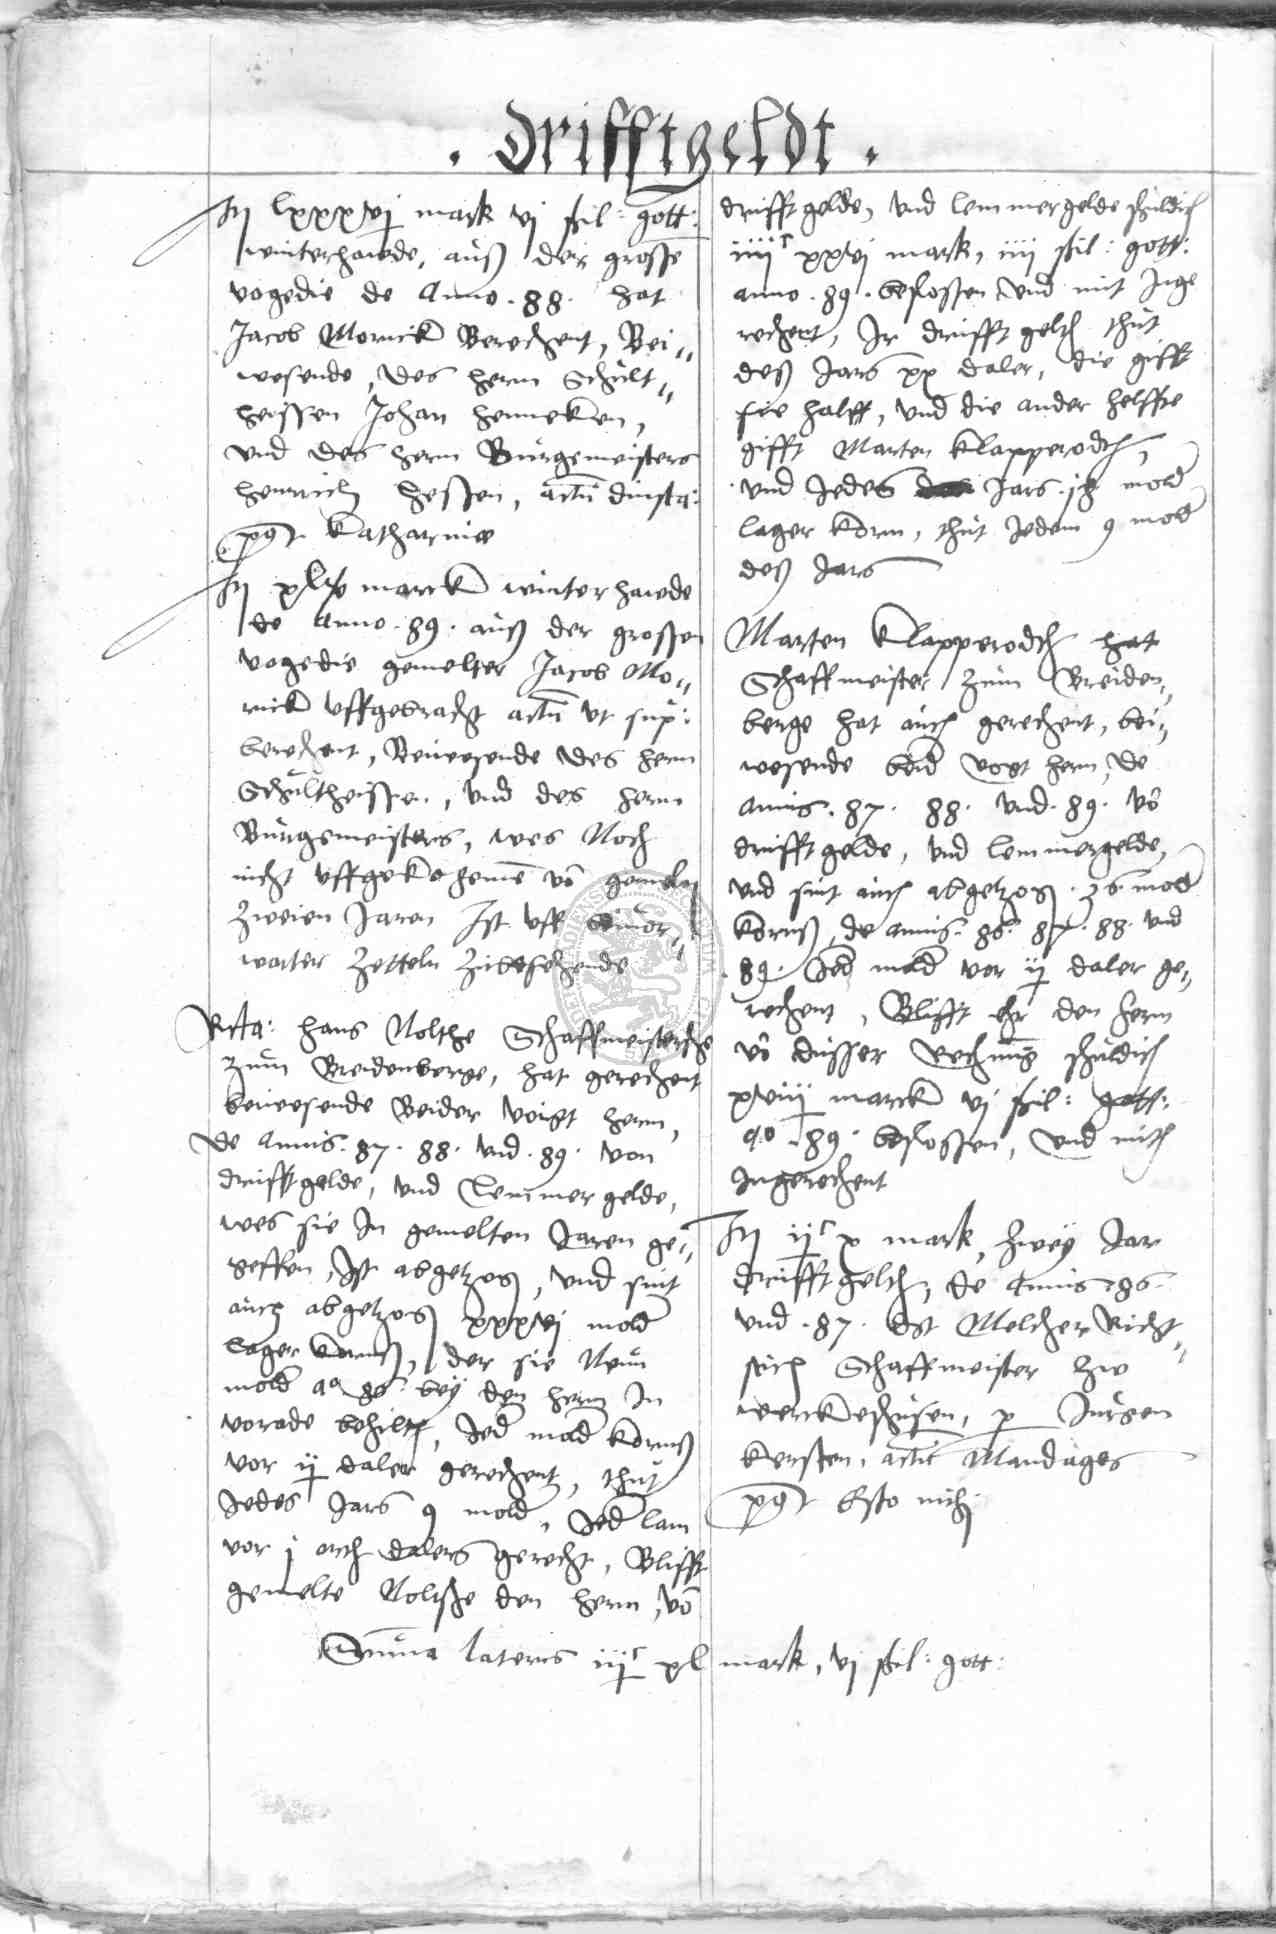 . Drifftgeldt .
Jt lxxxvj mark vj schil: gott:
winterhawde, auß der grosse
vogedie de Anno . 88 . hat
Jacob Mornick Berechent, Bei„
wesende, des hern Schult„
heissen Johan henneken,
vnd des hern Burgemeisters
henrich hessen, actu dinsta:
post Katharine
Jt xlv marck winterhawde
de Anno . 89 . auß der grossen
vogedie gemelter Jacob Mo„
rnick vffgebracht actu vt sup:
berechent, Beiwesende des hern
Schultheissen, vnd des hern
Burgemeisters, wes Noch
nicht vffgekohemen vo gemeltn
zweien Jaren Jst vff
warter Zetteln Zubesehende
Relicta: hans Nolthe Schaffmeistersche
zum Breidenberge, hat gerechent
beiwesende Beider voigt hern,
de Annis . 87 . 88 . vnd . 89 . von
drifftgelde, vnd Lemmer gelde,
wes sie in gemelten Jaren ge„
geffen, Jst abgetzog, vnd sint
auch abgetzog xxxvj mold
Lager korns, der sie Neun
mold ao 86 . bey den hern in
vorade behilt, Jed mold kornß
vor ij daler gerechent, thut
Jedes Jars 9 mold, Jed lam
vor j orth dalers gerecht, Blifft
gemelte Noltsche den hern, vo
drifftgelde, vnd lemmergelde schuldich
iiijc xxvj mark, iiij schil: gott:
anno . 89 . beslossen vnd mit Inge
rechent, Jr drifftgelth thut
deß Jars xx daler, die gifft
sie halff, vnd die ander helffte
gifft Marten Klapperodth,
vnd Jedes Jars . 18 mold
lager korn, thut Jedem 9 mold
deß Jars
Marten Klapperodth hat
Schaffmeister zum Breiden„
berge hat auch gerechent, bei„
wesende beid vogt hern, de
Annis . 87 . 88 . vnd . 89 . vo
drifftgelde, vnd lemmergelde,
vnd sint auch abgetzog . 36 mold
kornß, de annis . 86 . 87 . 88 . vnd
89 . Jed mold vor ij daler ge„
rechent, Blifft ehr den hern
vo dusser Rechnung schuldich
xviij marck vj schil: gott:
ao . 89 . beslossen, vnd mith
Ingerechent
Jt ijc x mark, zwey Jar
drifftgelth, de Annis . 86 .
vnd . 87 . dst Melcher Richt„
Schaffmeister zw
werckeshusen, p Jurgen
Kersten, actu Mandages
post Esto mihi
Summa lateris iijc xl mark, vj schil: gott: